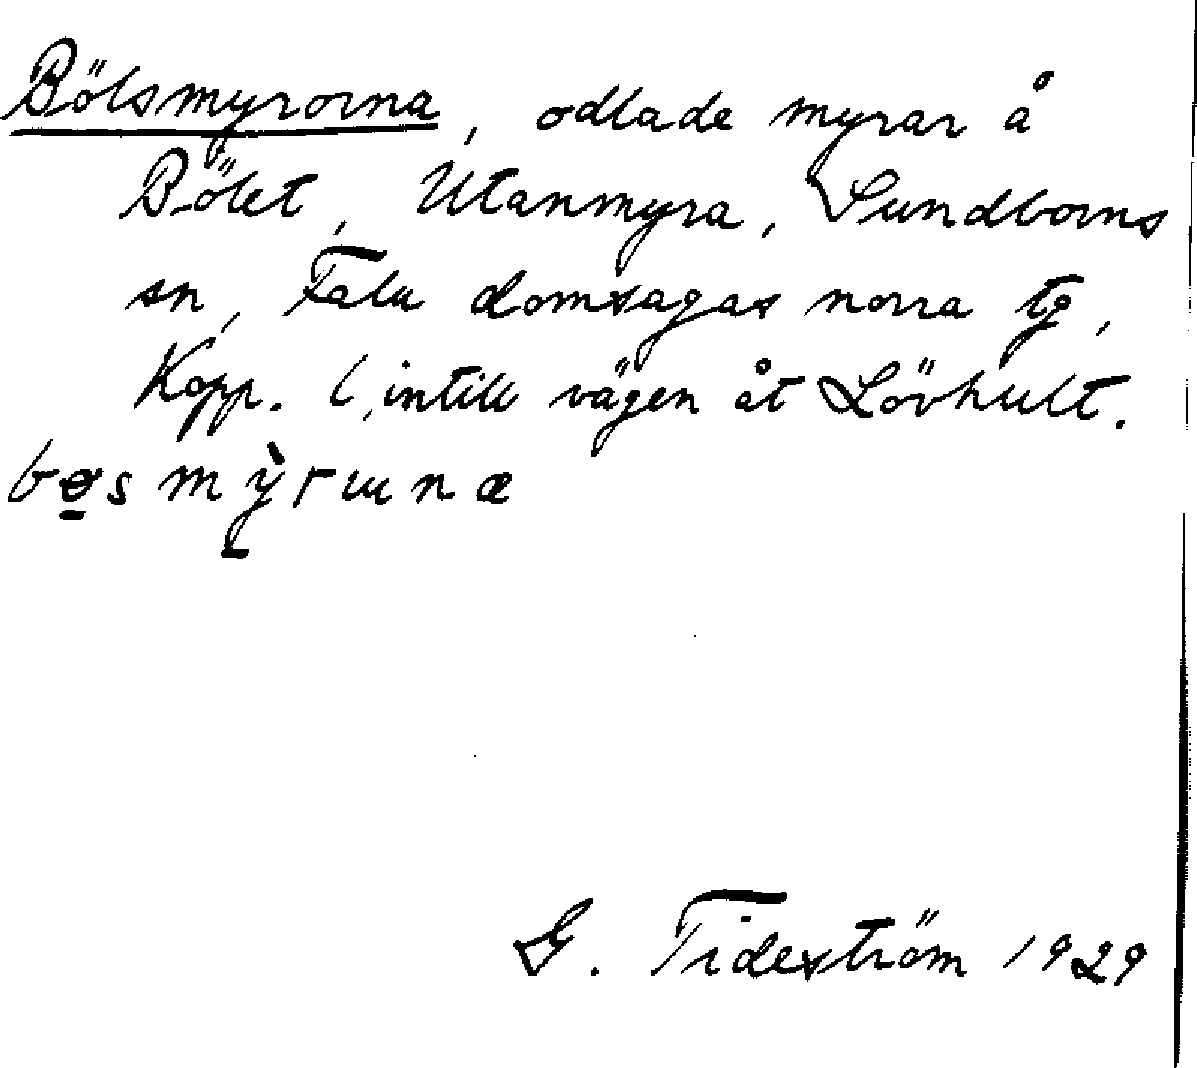 Bölsmyrorna, odlade myrar å
Bölet, Utanmyra, Sundborns
sn, Falu domsagas norra tg,
Kopp. l, intill vägen åt Lövhult.
bøsmỳrɯnæ
G. Tideström 1929